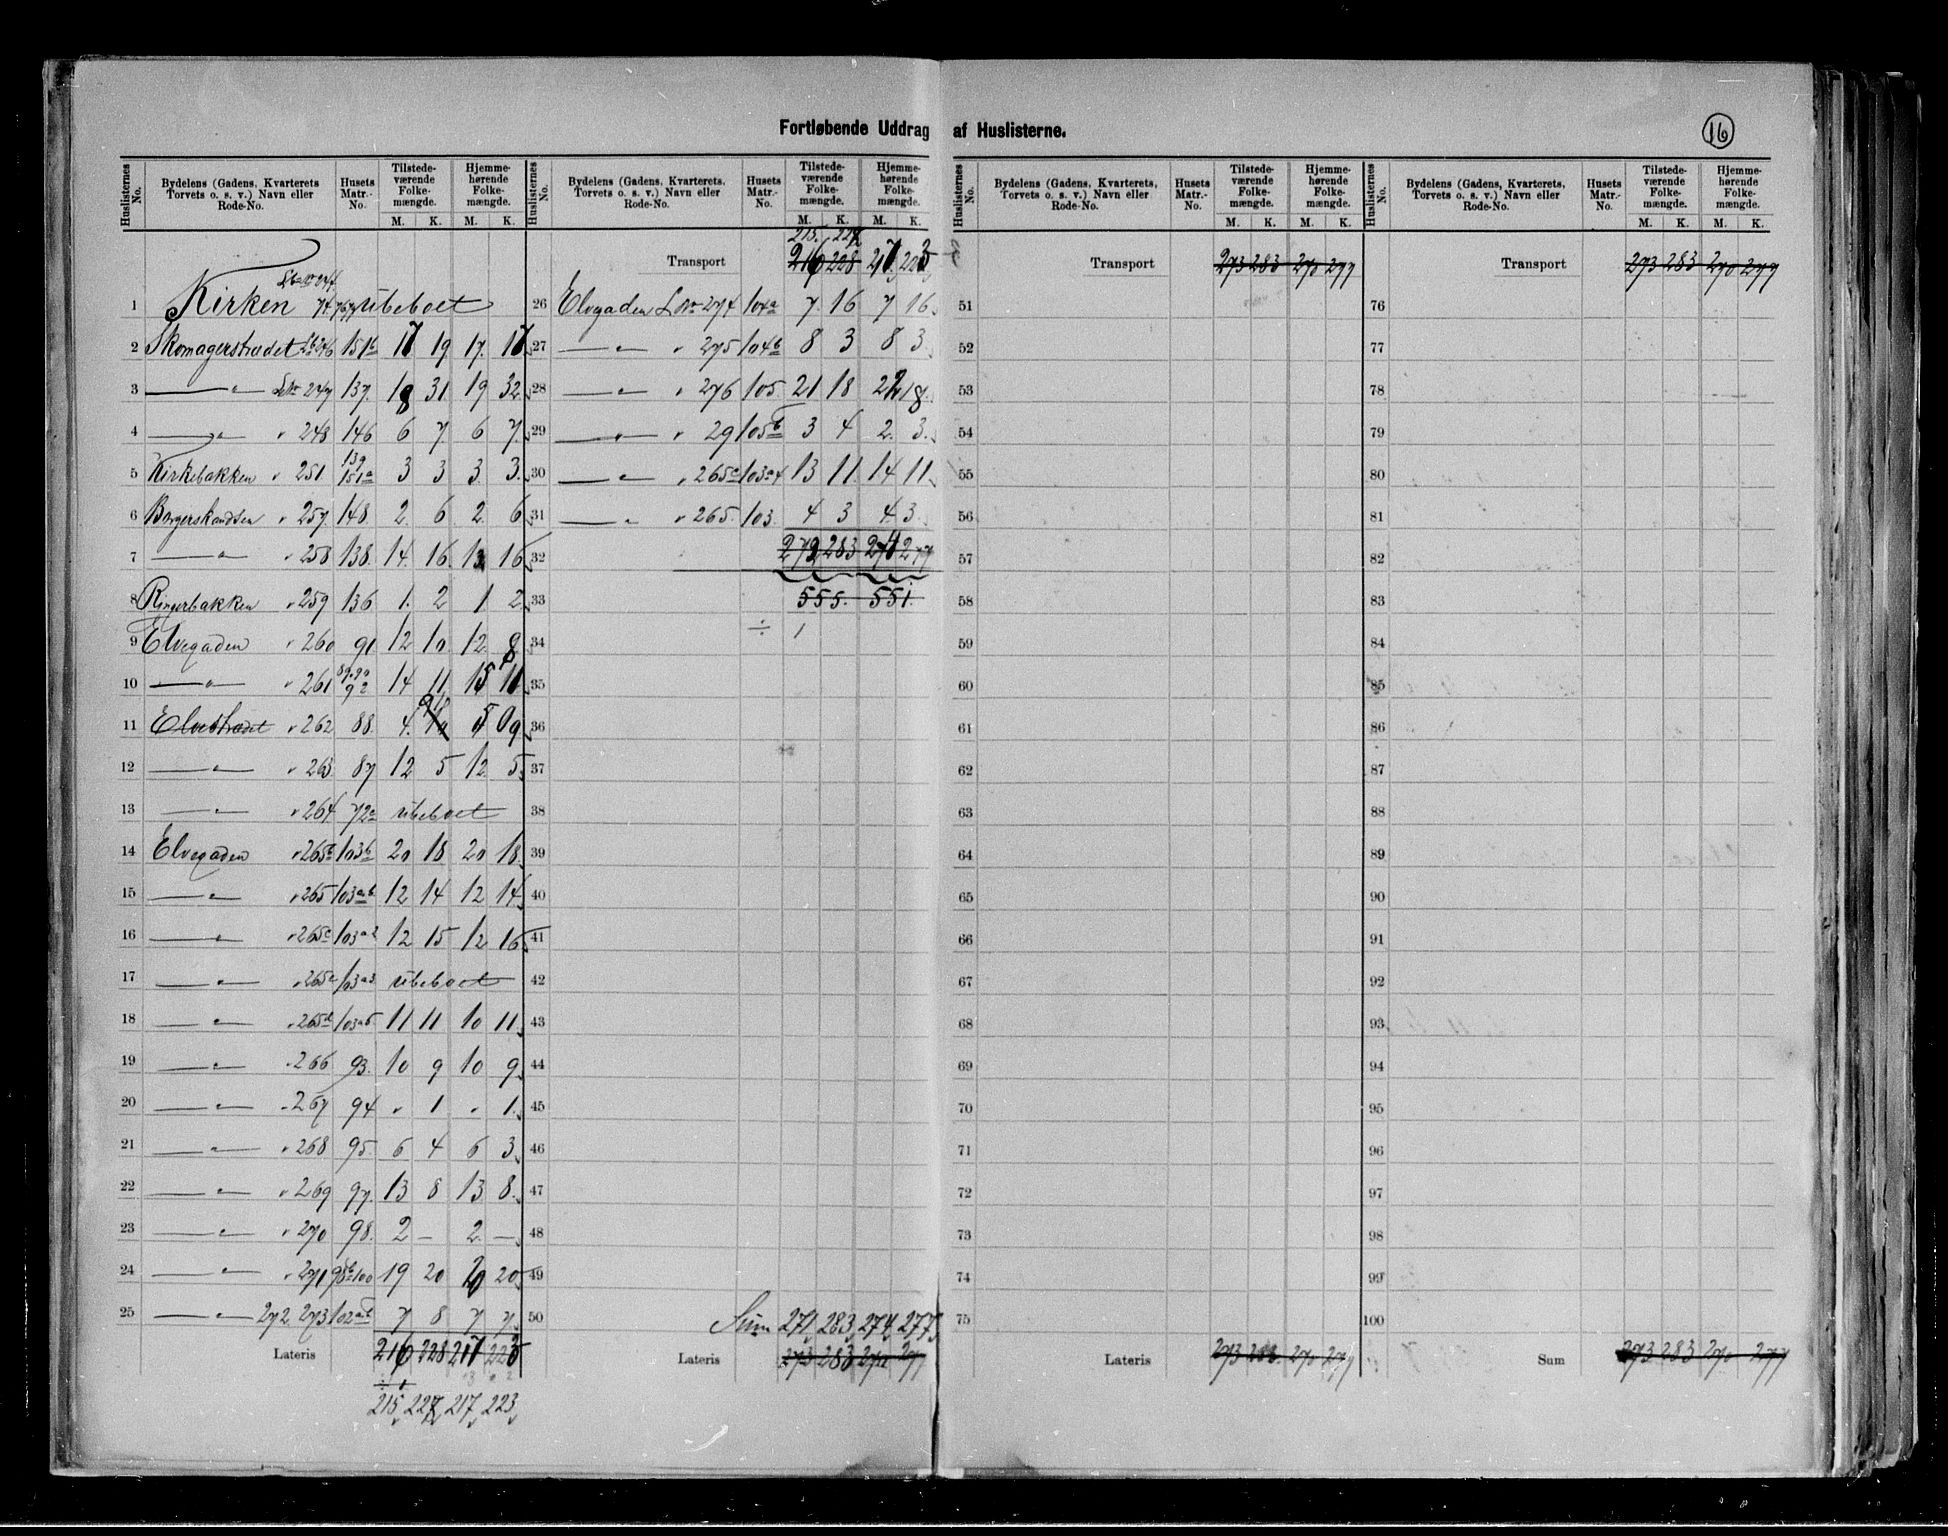 Fortløbende Uddrag af Huslisterne.
16
Huslisternes No. | Bydelens (Gadens, Kvarterets Torvets o. s. v.) Navn eller Rode-No. | Husets Matr.-No. | Tilstedeværende Folkemængde. M. K. | Hjemmehørende Folkemængde. M. K.
1 Kirken ubeboet
2 Skomagerstrædet 246 151b 17 19 17. 17
3 — " — LNo 247 137. 18 31 19 32
4 — " — " 248 146 6 7 6 7.
5 Kirkebakken " 251. 139 151a 3 3 3 3.
6 " 257. 148. 2. 6 2. 6
7 — " — " 258 138. 14. 16. 13 16
8 " 259 136 1. 2 1 2
9 Elvegaden " 260 91 12 10 12. 8
10 — " — " 261 89.90 92 14 11 15 11
11 Elvestrædet " 262 88. 4. 9
12 — " — " 263 87 12 5 12 5
13 — " — " 264 72a ubeboet
14 Elvegaden " 265b 103b 20 18 20 18.
15 — " — " 265 103ab 12 14 12 14
16 — " — " 265c 103a2 12 15 12 16
17 — " — " 265 103a3 ubeboet
18 — " — " 265d 103a5 11 11 10 11
19 — " — " 266 93. 10 9 10 9
20 — " — " 267 94 " 1 " 1.
21 — " — " 268 95 6 4 6 3
22 — " — " 269 97. 13 8 13 8.
23 — " — " 270 98. 2 — 2. —
24 — " — " 271 100 19 20 20 20
25 — " — 272. 273 102ab 7 8 7 7
Lateris 216 228 217 223
÷ 1
215 227 217 223
Huslisternes No. | Bydelens (Gadens, Kvarterets, Torvets o. s. v.) Navn eller Rode-No. | Husets Matr.-No. | Tilstedeværende Folkemængde. M. K. | Hjemmehørende Folkemængde. M. K.
215. 227
Transport 216 228 217 223
26 Elvegaden LNo 274 104a 7. 16 7 16
27 — " — " 275 104b 8 3 8 3.
28 — " — " 276 105. 21 18 22 18.
29 — " — " 29 105b 3 4 2. 3.
30 — " — " 265a 103a4 13 11. 14 11
31 — " — " 265. 103. 4 3 4. 3.
32 272 283 274 277
33 555. 551.
34 ÷ 1
35
36
37
38
39
40
41
42
43
44
45
46
47
48
49
50 Sum 271, 283, 274, 277,
Lateris 273 283 270 277
Huslisternes No. | Bydelens (Gadens, Kvarterets, Torvets o. s. v.) Navn eller Rode-No. | Husets Matr.-No. | Tilstedeværende Folkemængde. M. K. | Hjemmehørende Folkemængde. M. K.
Transport 273 283 270 277
51
52
53
54
55
56
57
58
59
60
61
62
63
64
65
66
67
68
69
70
71
72
73
74
75
Lateris 273 283. 270 277
Huslisternes No. | Bydelens (Gadens, Kvarterets, Torvets o. s. v.) Navn eller Rode-No. | Husets Matr.-No. | Tilstedeværende Folkemængde. M. K. | Hjemmehørende Folkemængde. M. K.
Transport 273 283 270 277
76
77
78
79
80
81
82
83
84
85
86
87
88
89
90
91
92
93
94
95
96
97
98
99
100
Sum 273 283 270 277